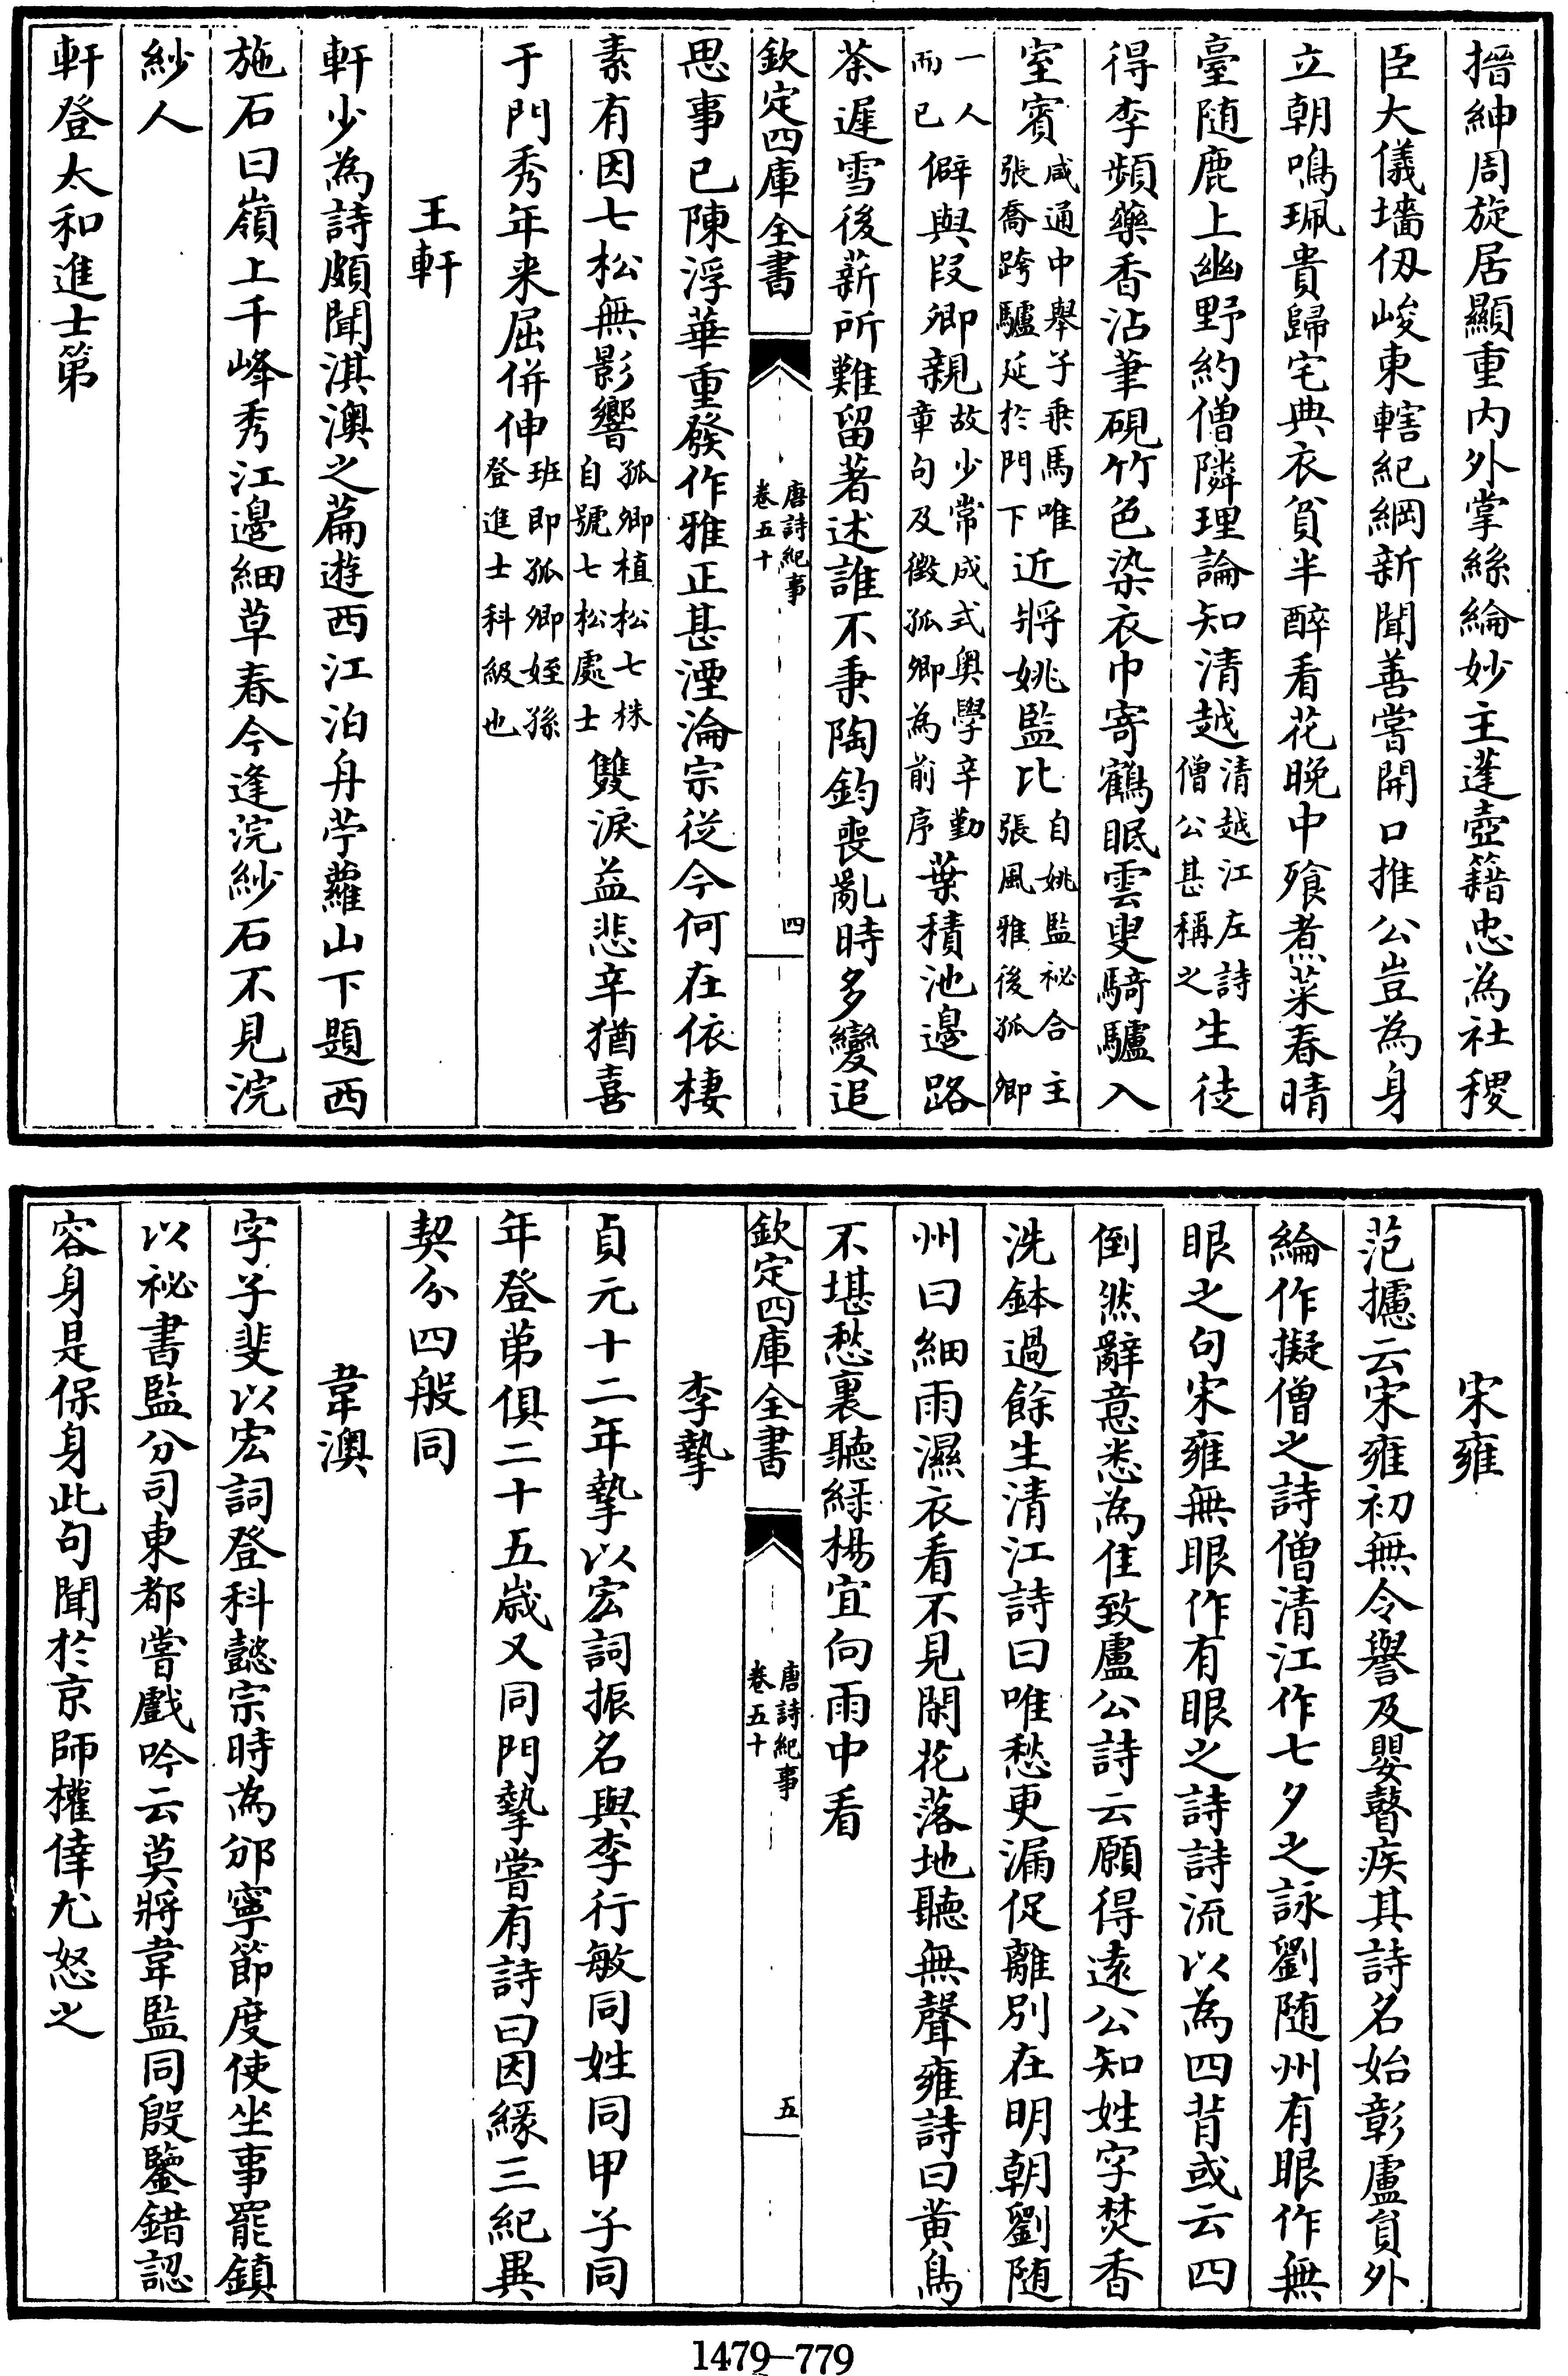 搢紳周旋居顯重内外掌絲綸妙主蓬壺籍忠為社稷
臣大儀墻仭峻東轄紀綱新聞善嘗開口推公豈為身
立朝鳴珮貴歸宅典衣貧半醉看花晚中飱煮菜春晴
臺随鹿上幽野約僧隣理論知清越清越江左詩僧公甚稱之生徒
得李頻藥香沾筆硯竹色染衣巾寄鶴眠雲叟騎驢入
室賓咸通中舉子乗馬唯張喬跨驢延於門下近將姚監比自姚監祕合主張風雅後孤卿
一人而已僻與段卿親故少常成式奥學辛勤章句及徴孤卿為前序葉積池邊路
荼遲雪後薪所難留著述誰不秉陶鈞喪亂時多變追
欽定四庫全書
唐詩紀事
卷五十
四
思事已陳浮華重發作雅正甚湮淪宗從今何在依棲
素有因七松無影響孤卿植松七株自號七松處士雙淚益悲辛猶喜
于門秀年来屈併伸班即孤卿姪孫登進士科級也
王軒
軒少為詩頗聞淇澳之篇遊西江泊舟苧蘿山下題西
施石曰嶺上千峰秀江邊細草春今逢浣紗石不見浣
紗人
軒登太和進士第
宋雍
范攄云宋雍初無令譽及嬰瞽疾其詩名始彰盧員外
綸作擬僧之詩僧清江作七夕之詠劉随州有眼作無
眼之句宋雍無眼作有眼之詩詩流以為四背或云四
倒然辭意悉為佳致盧公詩云願得逺公知姓字焚香
洗鉢過餘生清江詩曰唯愁更漏促離别在明朝劉随
州曰細雨濕衣看不見閑花落地聽無聲雍詩曰黄鳥
不堪愁裏聽緑楊宜向雨中看
欽定四庫全書
唐詩紀事
卷五十
五
李摯
貞元十二年摯以宏詞振名與李行敏同姓同甲子同
年登第俱二十五嵗又同門摯嘗有詩曰因緣三紀異
契分四般同
韋澳
字子斐以宏詞登科懿宗時為邠寧節度使坐事罷鎮
以祕書監分司東都嘗戲吟云莫將韋監同殷鑒錯認
容身是保身此句聞於京師權倖尤怒之
1479-779